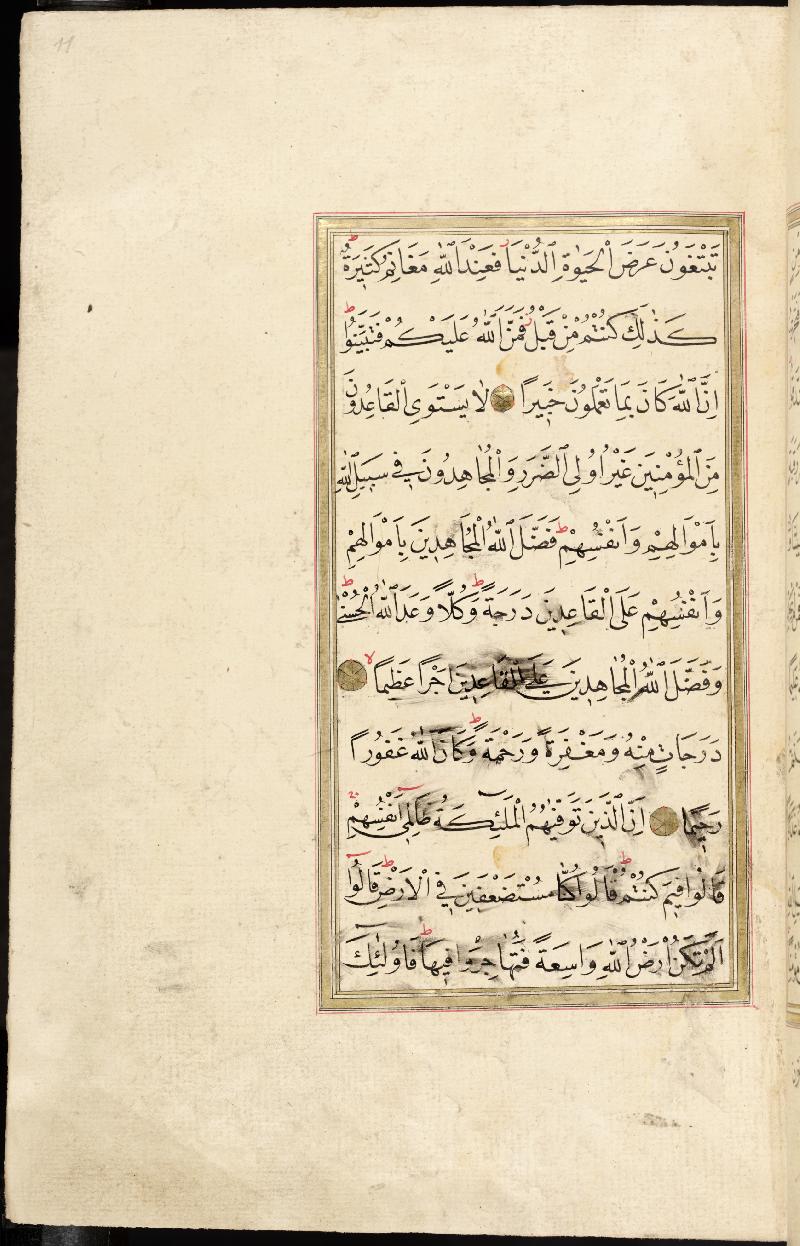 11
تَبْتَغُونَ عَرَضَ الْحَيٰوةِ الدُّنْيَا فَعِنْدَ اللّٰهِ مَغَانِمُ كَثِيرَةٌ ط
كَذٰلِكَ كُنْتُمْ مِنْ قَبْلُ فَمَنَّ اللّٰهُ عَلَيْكُمْ فَتَبَيَّنُوا ط
اِنَّ اللّٰهَ كَانَ بِمَا تَعْمَلُونَ خَبِيراً لَا يَسْتَوِى الْقَاعِدُونَ
مِنَ الْمُؤْمِنِينَ غَيْرُ اُولِى الضَّرَرِ وَالْمُجَاهِدُونَ فِى سَبِيلِ اللّٰهِ
بِاَمْوَالِهِمْ وَاَنْفُسِهِمْ ط فَضَّلَ اللّٰهُ الْمُجَاهِدِينَ بِاَمْوَالِهِمْ
وَاَنْفُسِهِمْ عَلَى الْقَاعِدِينَ دَرَجَةً ط وَكُلّاً وَعَدَ اللّٰهُ الْحُسْنٰى ط
وَفَضَّلَ اللّٰهُ الْمُجَاهِدِينَ عَلَى الْقَاعِدِينَ اَجْراً عَظِيماً لا
دَرَجَاتٍ مِنْهُ وَمَغْفِرَةً وَرَحْمَةً ط وَكَانَ اللّٰهُ غَفُوراً
رَحِيماً اِنَّ الَّذِينَ تَوَفّٰيهُمُ الْمَلٰئِكَةُ ظَالِمِى اَنْفُسِهِمْ
قَالُوا فِيمَ كُنْتُمْ ط قَالُوا كُنَّا مُسْتَضْعَفِينَ فِى الْاَرْضِ ط قَالُوا
اَلَمْ تَكُنْ اَرْضُ اللّٰهِ وَاسِعَةً فَتُهَاجِرُوا فِيهَا ط فَاُولٰئِكَ